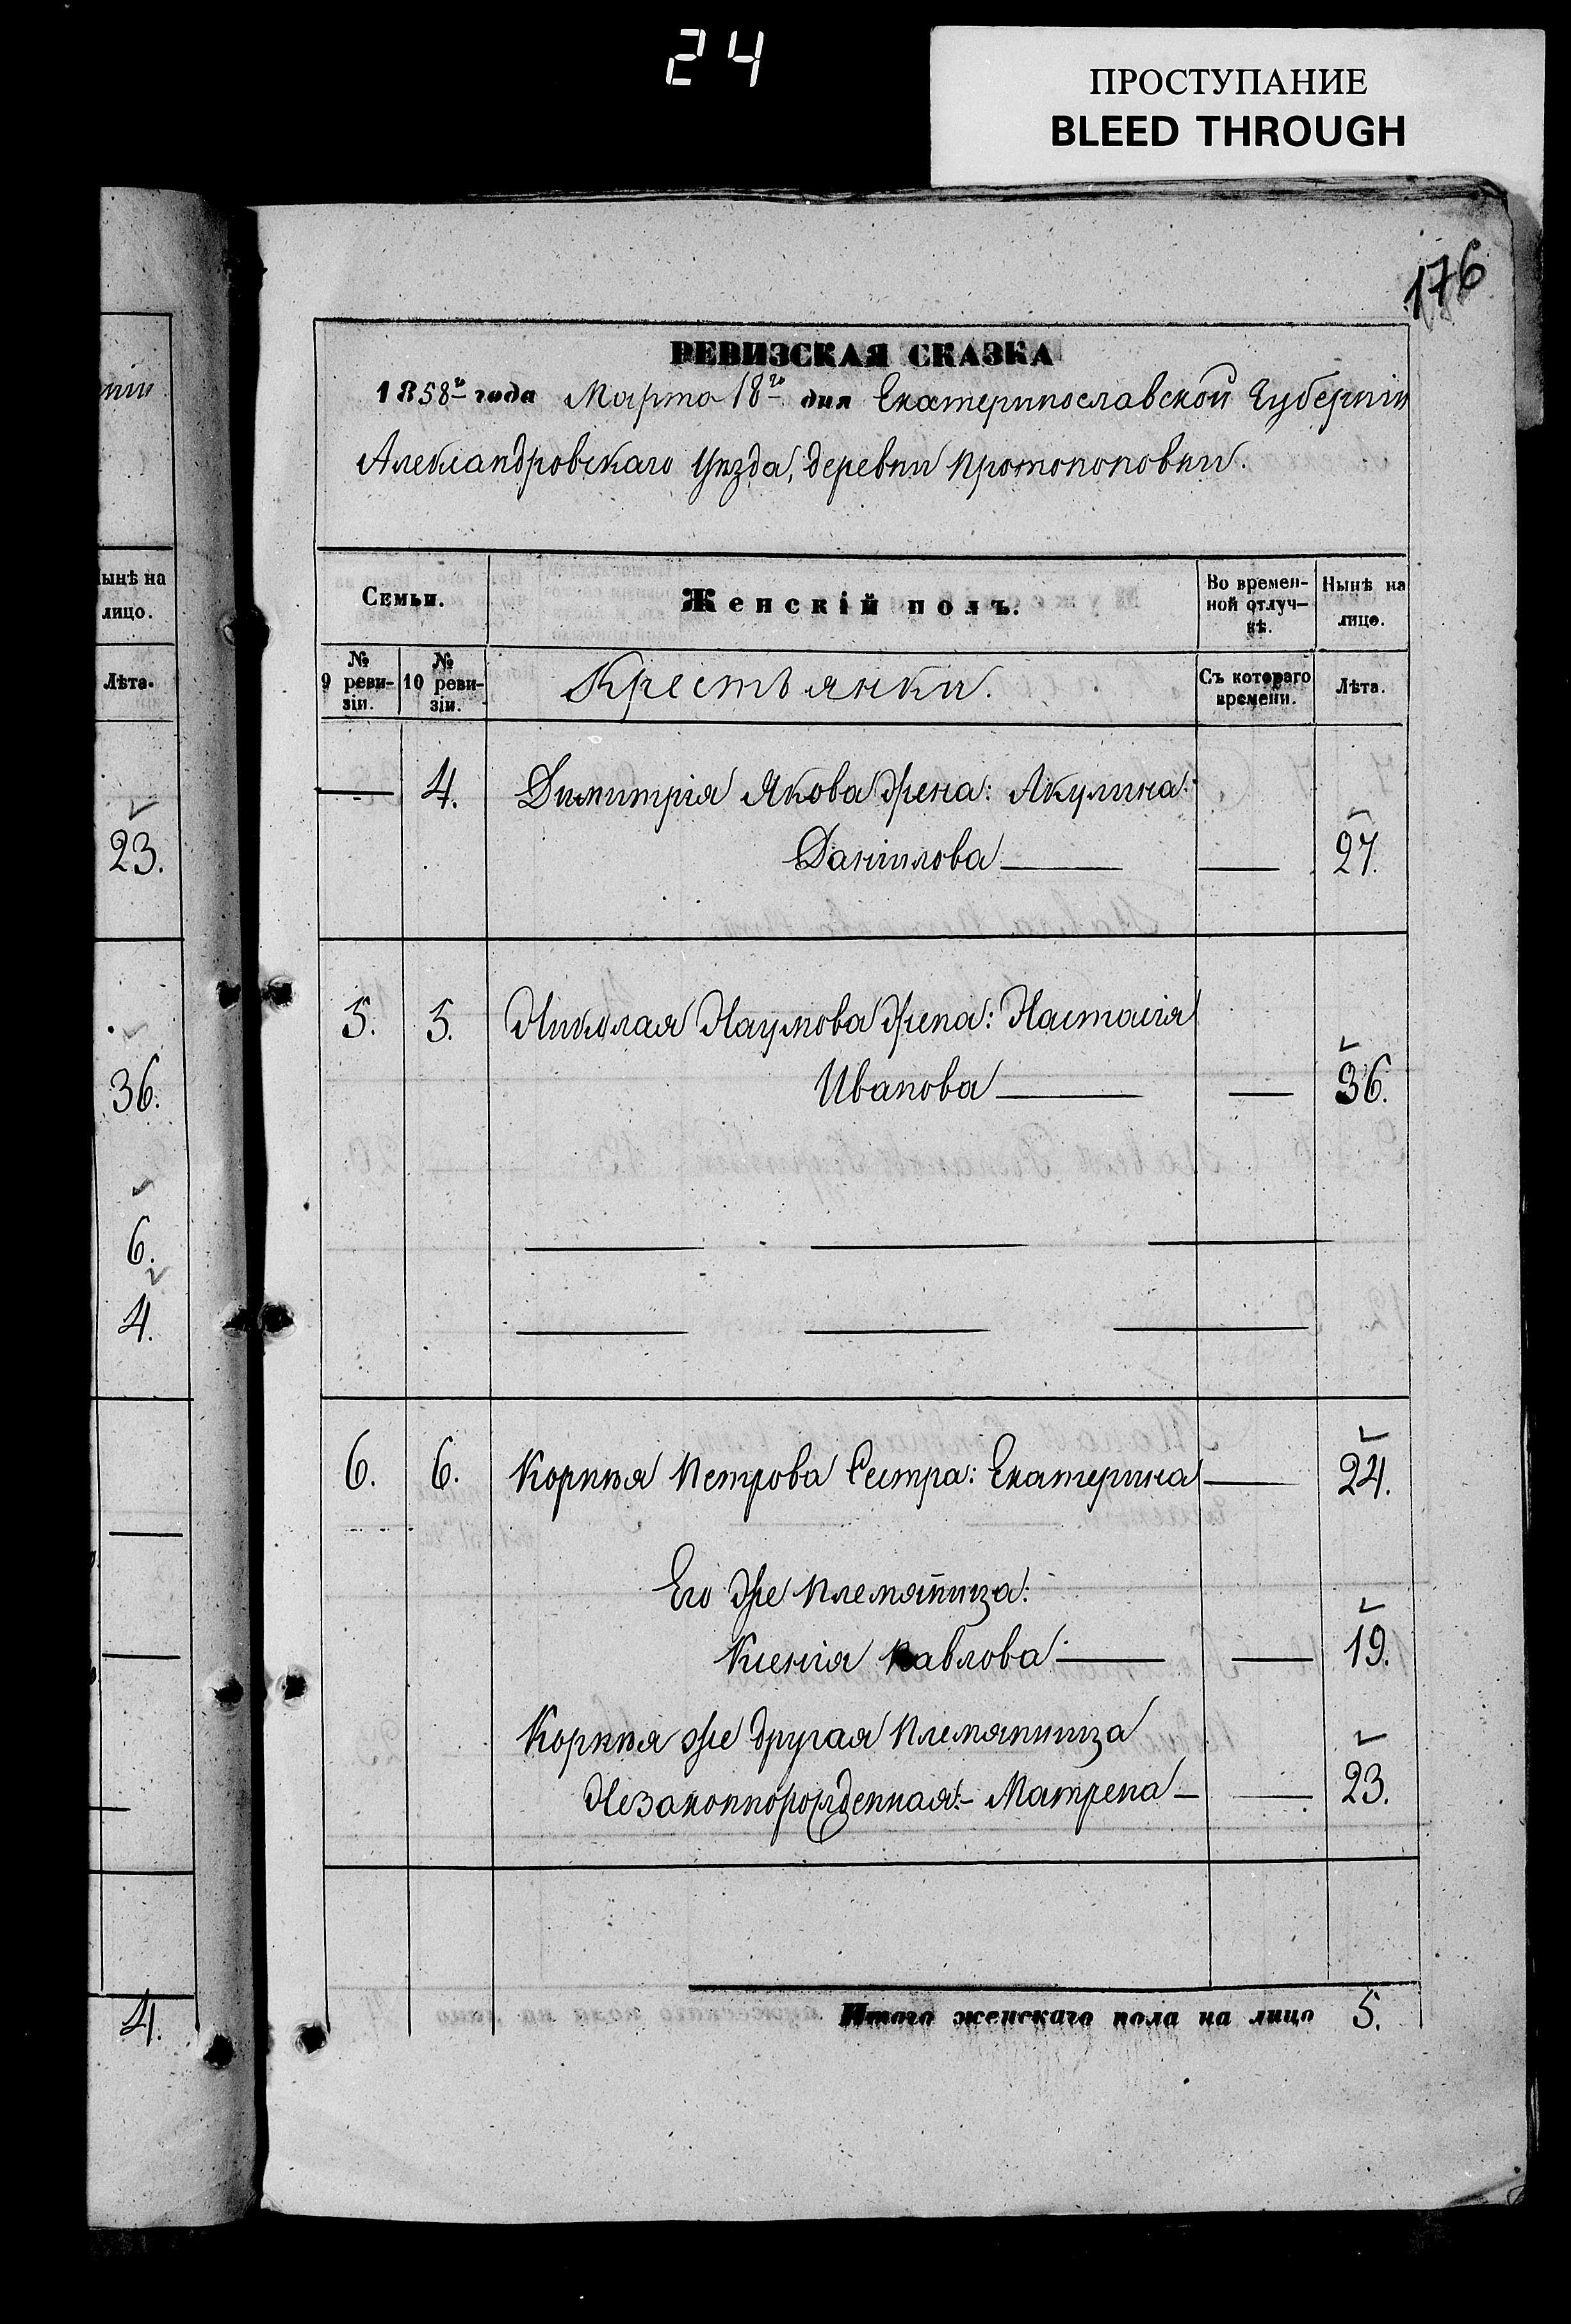 24
ПРОСТУПАНИЕ
BLEED THROUGH
176
РЕВИЗСКАЯ СКАЗКА
1858го года Марта 18го дня Екатеринославской Губерніи
Александровскаго Уѣзда, деревни Протопоповки.
Семьи.
Женскій полъ.
Во времен-
ной отлуч-
кѣ.
Нынѣ на
лицо.
№
9 реви-
зіи.
№
10 реви-
зіи.
Крестьянки.
Съ котораго
времени.
Лѣта.
— 4. Димитрія Якова жена: Акулина
Данiилова — — 27.
5. 5. Николая Наумова жена: Настасія
Иванова — — 36.
6. 6. Корнѣя Петрова Сестра: Екатерина — 24.
Его же племянница:
Ксенія Павлова — — 19.
Корнѣя же другая племянница
Незаконнорожденная:- Матрена — — 23.
Итого женскаго пола на лицо 5.
ніи
ынѣ на
лицо.
Лѣта.
23.
36.
6.
4.
4.